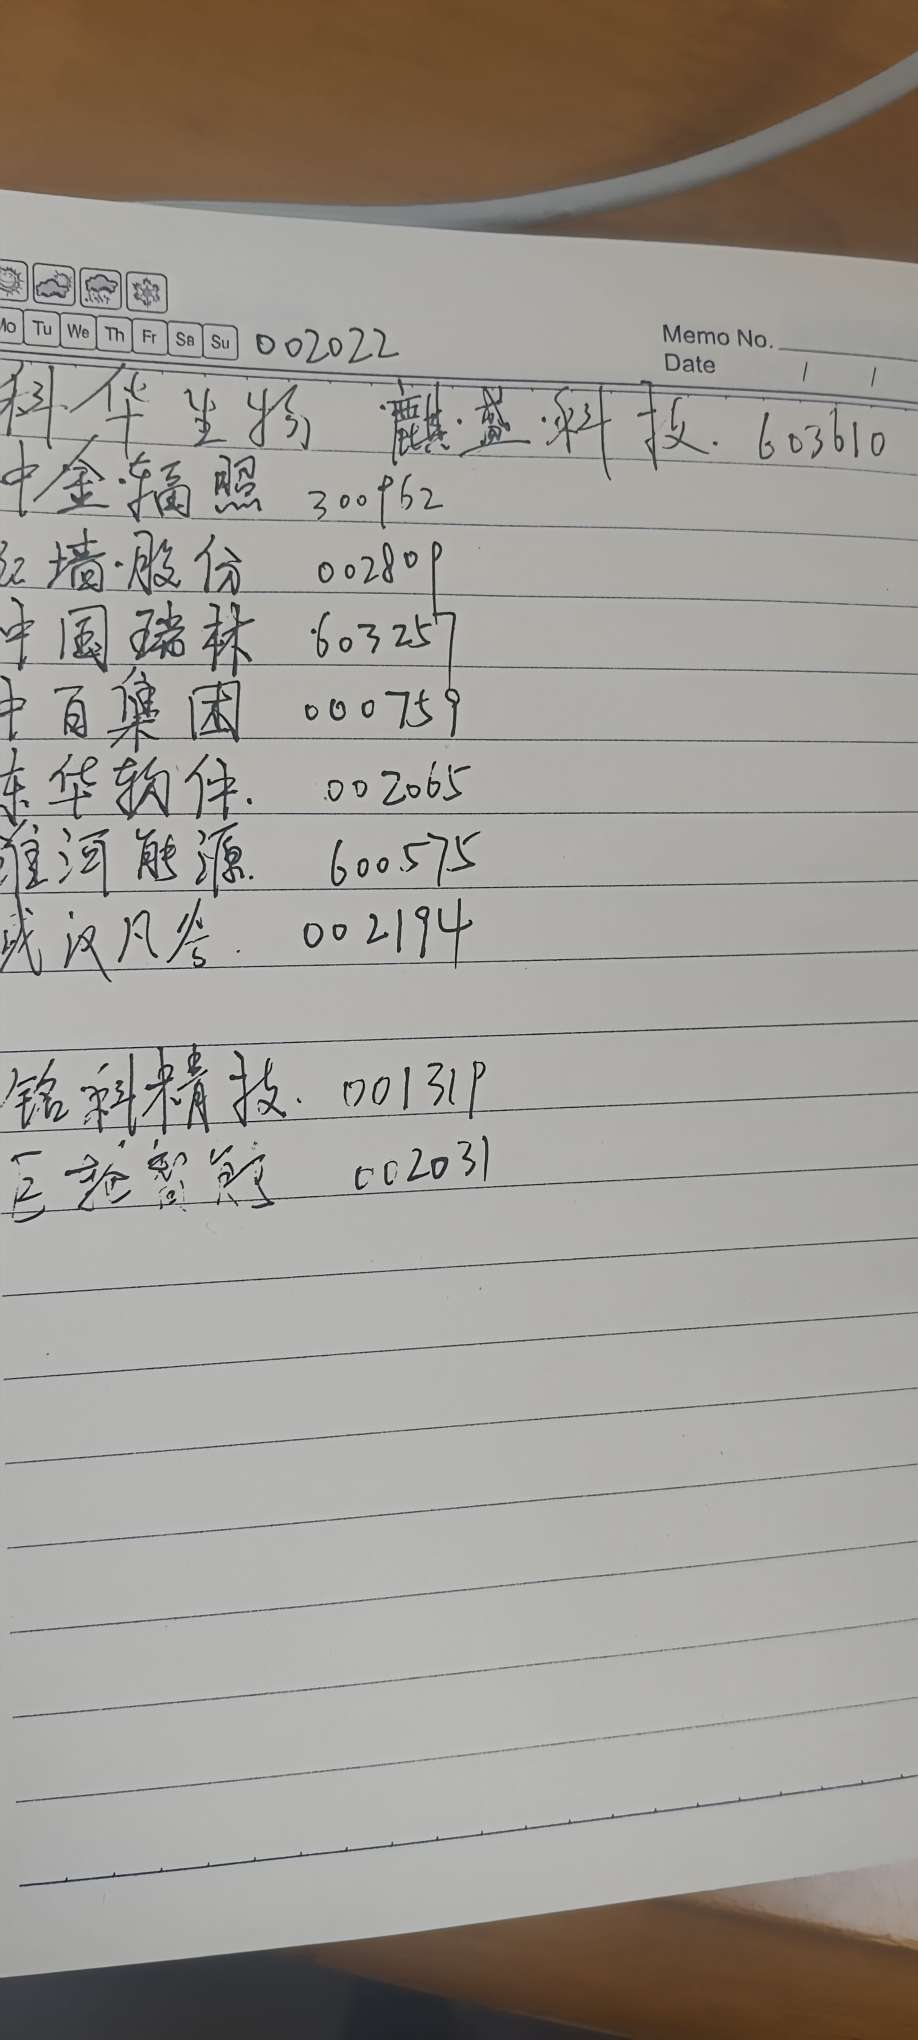 Mo Tu We Th Fr Sa Su 002022 Memo No.
Date / /
科华生物 麒盛科技. 603610
中金辐照 300962
红墙股份 002809
中国瑞林 603257
中百集团 000759
东华软件. 002065
淮河能源. 600575
武汉凡谷. 002194
铭科精技. 001319
巨轮智能 002031